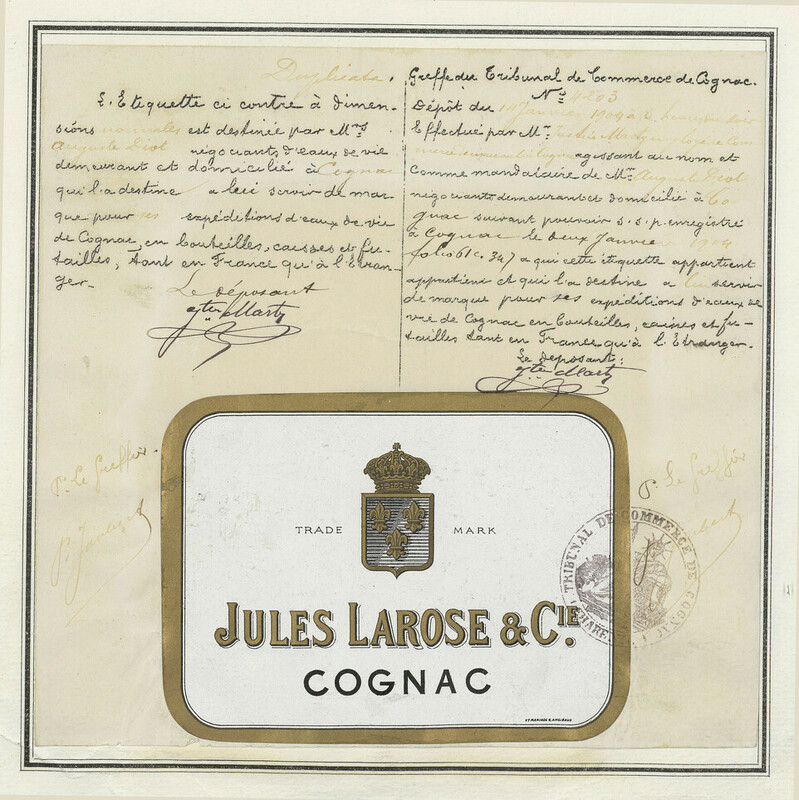 Duplicata.
L'Etiquette ci contre à dimen-
sions nouvelles est destinée par Mrs
Auguste Diot négociants d'eaux de vie
demeurant et domicilié à Cognac
qui l'a destine a leci servir de mar-
que pour ses expéditions d'eaux de vie
de Cognac, en bouteilles, caisses et fu-
tailles, tant en France qu'à l'Etran-
ger.
Le déposant
Marty
Greffe du Tribunal de Commerce de Cognac.
No 4203
Dépôt du 14 Janvier 1904 à
Effectué par Mr.
agissant au nom et
comme mandataire de Mr. Auguste Diot
négociants demeurant et domicilié à Co
gnac suivant pouvoir s.s.p. enregistré
à Cognac le deux Janvier 1904
folio 61 c. 347 a qui cette étiquette appartient
appartient et qui l'a destine a lui servir
de marque pour ses expéditions d'eaux de
vie de Cognac en bouteilles, caisses et fu-
tailles tant en France qu'à l'Etranger.
Le déposant:
Marty
P. Le Greffier
P. Le Greffier
TRADE MARK
JULES LAROSE & CIE.
COGNAC
TRIBUNAL DE COMMERCE DE COGNAC